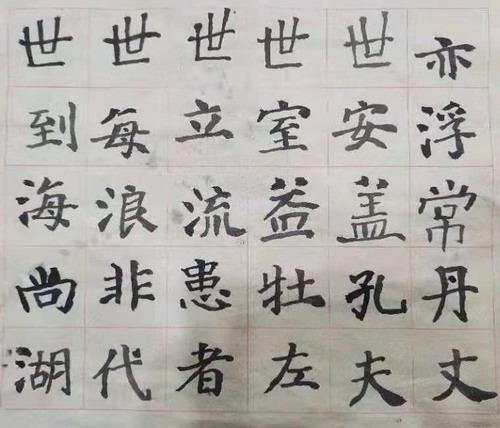 世世世世世亦
到每立室安浮
海浪流益盖常
尚非患牡孔丹
湖代者左夫丈